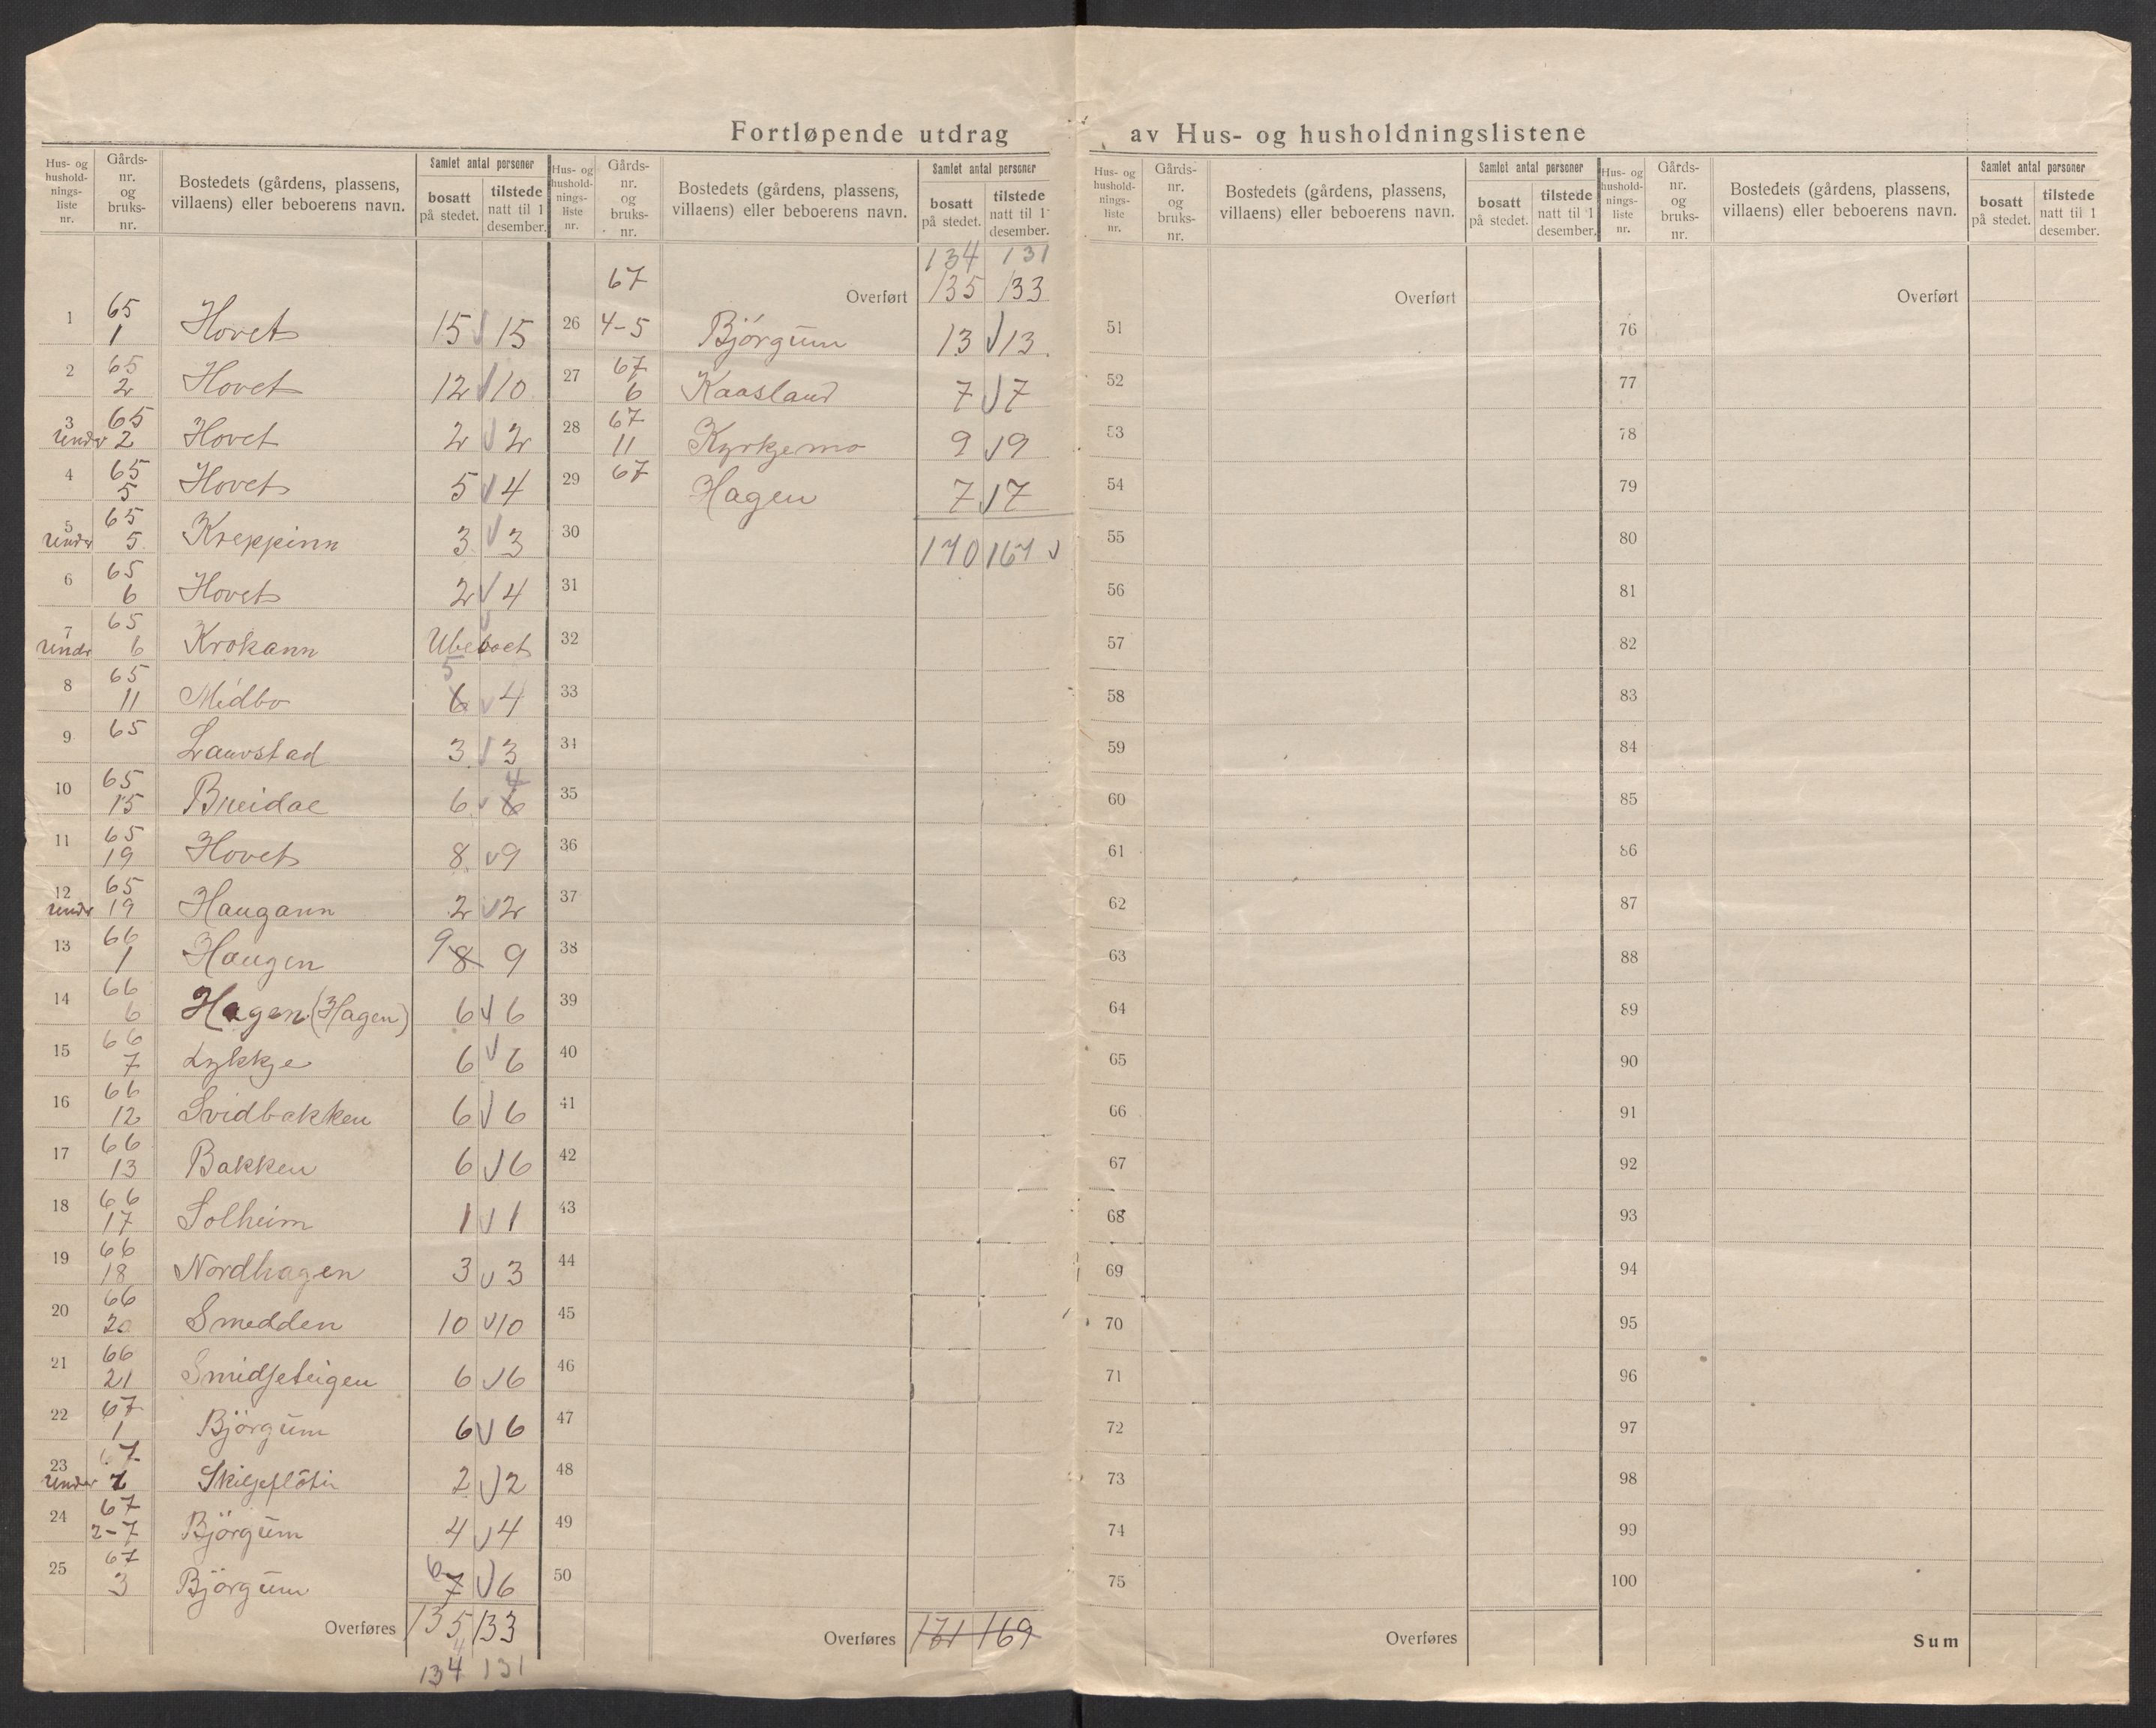 Fortløpende utdrag av Hus- og husholdningslistene
Hus- og hushold-nings-liste nr. Gårds-nr. og bruks-nr. Bostedets (gårdens, plassens, villaens) eller beboerens navn. Samlet antal personer bosatt på stedet. tilstede natt til 1 desember.
1 65 1 Hovet 15 15
2 65 2 Hovet 12 10
3 Under 65 2 Hovet 2 2
4 65 5 Hovet 5 4
5 Under 65 5 Kreppinn 3 3
6 65 6 Hovet 2 4
7 Undr 65 6 Krokann Ubeboet
8 65 11 Midbo 6 5 4
9 65 Lauvstad 3 3
10 65 15 Breidal 6 6 4
11 65 19 Hovet 8 9
12 Undr 65 19 Haugann 2 2
13 66 1 Haugen 9 8 9
14 66 6 Hagen (Hagen) 6 6
15 66 7 Lykkje 6 6
16 66 12 Svidbakken 6 6
17 66 13 Bakken 6 6
18 66 17 Solheim 1 1
19 66 18 Nordhagen 3 3
20 66 20 Smedden 10 10
21 66 21 Smidjeteigen 6 6
22 67 1 Björgum 6 6
23 Under 67 Skiljeflötin 2 2
24 67 2-7 Björgum 4 4
25 67 3 Björgum 6 7 6
Overføres 135 133
134 131
Hus- og hushold-nings-liste nr. Gårds-nr. og bruks-nr. Bostedets (gårdens, plassens, villaens) eller beboerens navn. Samlet antal personer bosatt på stedet. tilstede natt til 1 desember.
134 131
Overført 135 133
26 67 4-5 Björgum 13 13
27 67 6 Kaasland 7 7
28 67 11 Kyrkjemo 9 9
29 67 Hagen 7 7
30 170 167
31
32
33
34
35
36
37
38
39
40
41
42
43
44
45
46
47
48
49
50
Overføres 171 169
Hus- og hushold-nings-liste nr. Gårds-nr. og bruks-nr. Bostedets (gårdens, plassens, villaens) eller beboerens navn. Samlet antal personer bosatt på stedet. tilstede natt til 1 desember.
Overført
51
52
53
54
55
56
57
58
59
60
61
62
63
64
65
66
67
68
69
70
71
72
73
74
75
Overføres
Hus- og hushold-nings-liste nr. Gårds-nr. og bruks-nr. Bostedets (gårdens, plassens, villaens) eller beboerens navn. Samlet antal personer bosatt på stedet. tilstede natt til 1 desember.
Overført
76
77
78
79
80
81
82
83
84
85
86
87
88
89
90
91
92
93
94
95
96
97
98
99
100
Sum